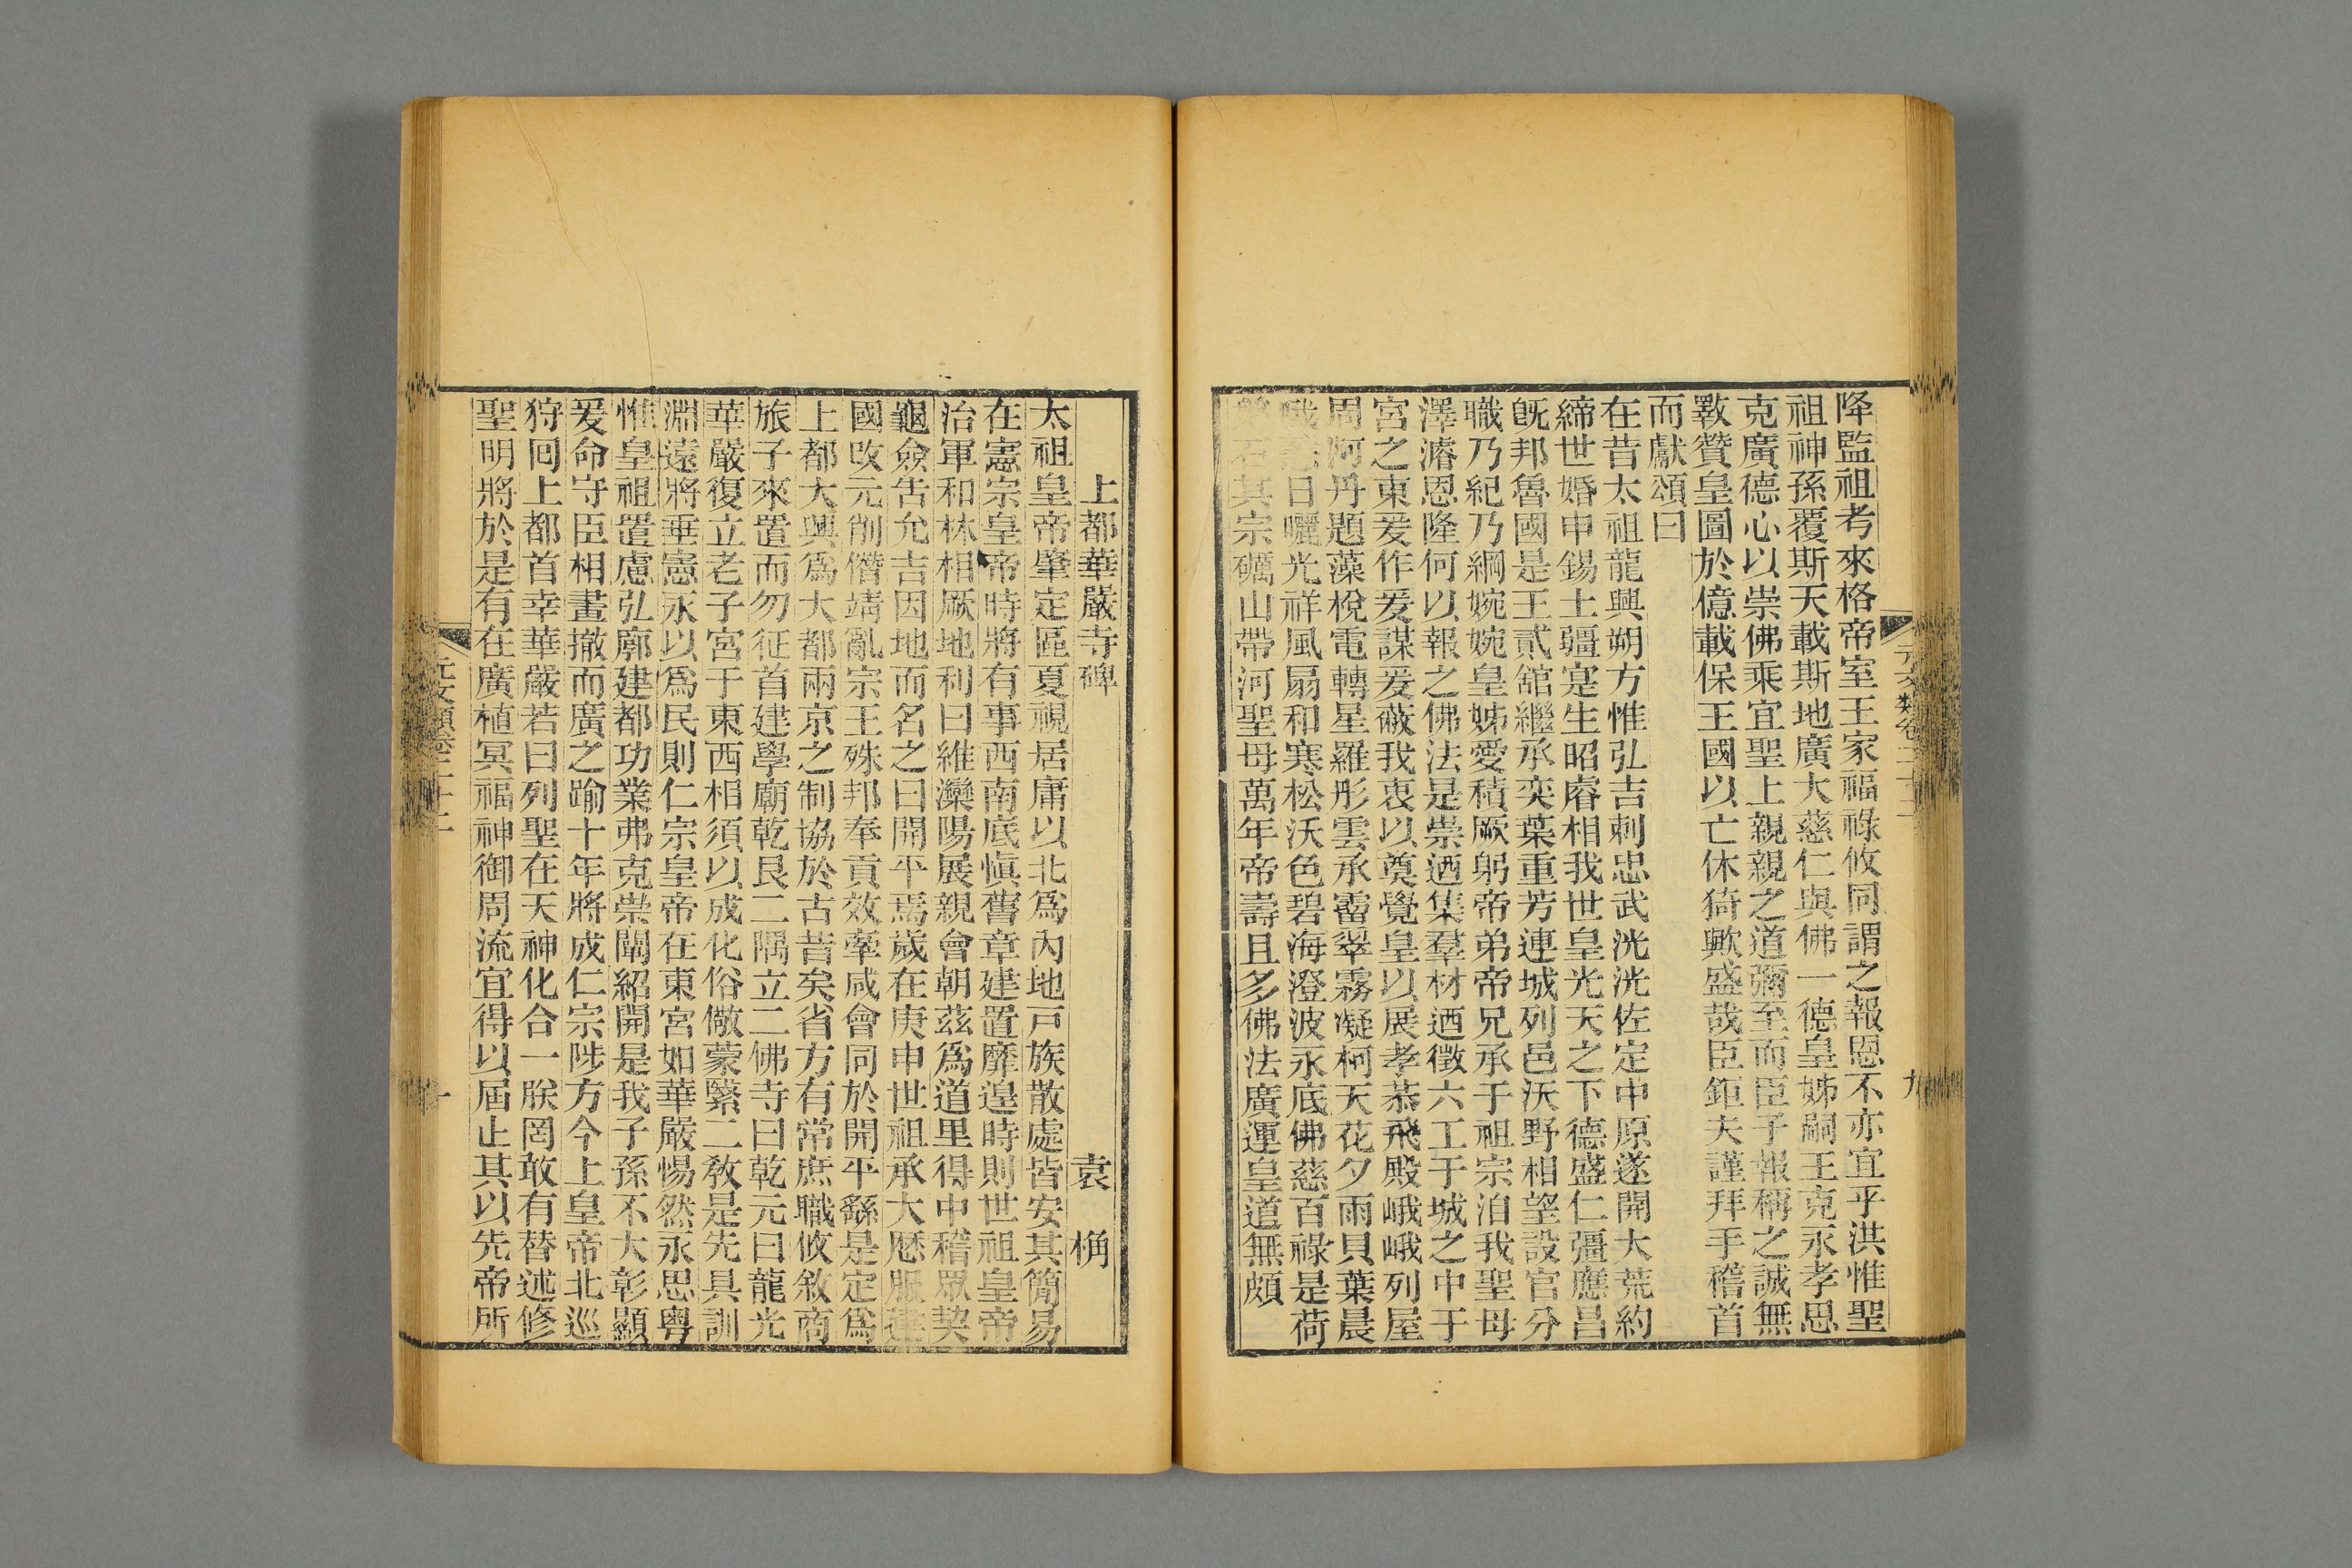 降監祖考來格帝室王家福祿攸同謂之報恩不亦宜乎洪惟聖
祖神孫覆斯天載斯地廣大慈仁與佛一德皇姊嗣王克永孝思
克廣德心以崇佛乘宜聖上親親之道彌至而臣子報稱之誠無
斁贊皇圖於億載保王國以亡休猗歟盛哉臣鉅夫謹拜手稽首
而獻頌曰
在昔太祖龍興朔方惟弘吉剌忠武洸洸佐定中原遂開大荒約
締世婚申錫土疆寔生昭睿相我世皇光天之下德盛仁彊應昌
旣邦魯國是王貳舘繼承奕葉重芳連城列邑沃野相望設官分
職乃紀乃綱婉婉皇姊愛積厥躬帝弟帝兄承于祖宗洎我聖母
澤濬恩隆何以報之佛法是崇迺集羣材迺徵六工于城之中于
宮之東爰作爰謀爰蔽我衷以奠覺皇以展孝恭飛殿峨峨列屋
周阿丹題藻梲電轉星羅彤雲承霤翠霧凝柯天花夕雨貝葉晨
日曬光祥風扇和寒松沃色碧海澄波永底佛慈百祿是荷
石其宗礪山帶河聖母萬年帝壽且多佛法廣運皇道無頗
元文類卷二十二
九
上都華嚴寺碑 袁桷
太祖皇帝肇定區夏視居庸以北爲內地戸族散處皆安其簡易
在憲宗皇帝時將有事西南底愼舊章建置靡遑時則世祖皇帝
治軍和林相厥地利曰維灤陽展親會朝茲爲道里得中稽眾契
龜僉告允吉因地而名之曰開平焉歲在庚申世祖承大厯服建
國改元削僭靖亂宗王殊邦奉貢效牽咸會同於開平繇是定爲
上都大興爲大都兩京之制協於古昔矣省方有常庶職攸敘商
旅子來置而勿征首建學廟乾艮二隅立二佛寺曰乾元曰龍光
華嚴復立老子宮于東西相須以成化俗儆蒙繄二教是先具訓
淵遠將垂憲永以爲民則仁宗皇帝在東宮如華嚴惕然永思粵
惟皇祖置慮弘廓建都功業弗克崇闡紹開是我子孫不大彰顯
爰命守臣相畫撤而廣之踰十年將成仁宗陟方今上皇帝北巡
狩回上都首幸華嚴若曰列聖在天神化合一朕罔敢有替述修
聖明將於是有在廣植冥福神御周流宜得以屆止其以先帝所
元文類卷二十二